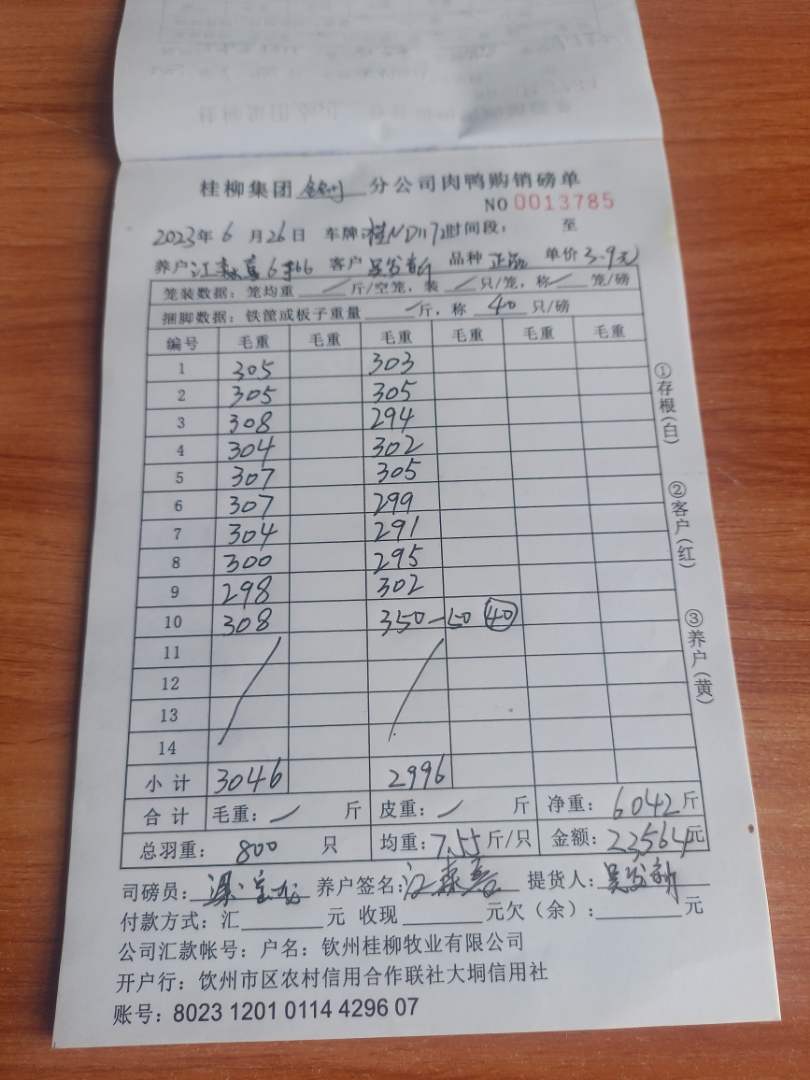 桂柳集团 钦州 分公司肉鸭购销磅单
NO 0013785
2023年 6 月 26 日 车牌:桂ND1172 时间段: 至
养户 江森喜 客户 吴发新 品种 单价 3.9元
笼装数据: 笼均重 / 斤/空笼, 装 / 只/笼, 称 / 笼/磅
捆脚数据: 铁筐或板子重量 / 斤, 称 40 只/磅
编号 毛重 毛重 毛重 毛重 毛重 毛重
1 305 303
2 305 305
3 308 294
4 304 302
5 307 305
6 307 299
7 304 291
8 300 295
9 298 302
10 308 350-50 40
11
12
13
14
小计 3046 2996
合计 毛重: / 斤 皮重: / 斤 净重: 6042斤
总羽重: 800 只 均重: 7.55斤/只 金额: 23564元
司磅员: 养户签名: 江森喜 提货人: 吴发新
付款方式: 汇 元 收现 元欠(余): 元
公司汇款帐号: 户名: 钦州桂柳牧业有限公司
开户行: 饮州市区农村信用合作联社大垌信用社
账号: 8023 1201 0114 4296 07
①存根(白)
②客户(红)
③养户(黄)